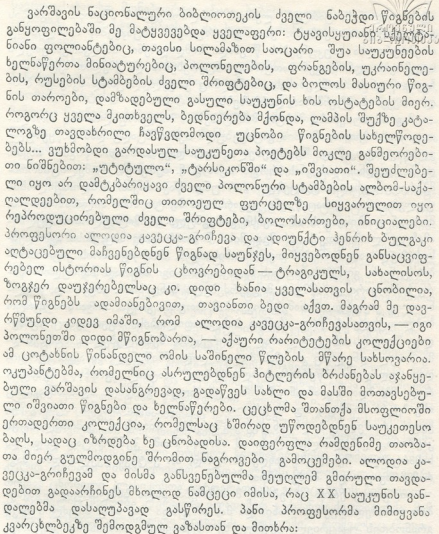 ვარშავის ნაციონალური ბიბლიოთეკის ძველი ნაბეჭდი წიგნების
განყოფილებაში მე მატყვევებდა ყველაფერი: ტყავისყუიანი
ნიანი ფოლიანტებიც, თავისი სილამაზით საოცარი შუა საუკუნეების
ხელნაწერთა მინიატურებიც, პოლონელების, ფრანგების, უკრაინელე-
ბის, რუსების სტამბების ძველი შრიფტებიც, და ბოლოს მასიური წიგ-
ნის თაროები, დამზადებული გასული საუკუნის ხის ოსტატების მიერ.
როგორც ყველა მკითხველს, ბედნიერება მქონდა, ლამპის შუქზე კატა-
ლოგზე თავდახრილი ჩავწვდომოდი უცნობი წიგნების სახელწოდე-
ბებს... ვუხმობდი გარდასულ საუკუნეთა პოეტებს მოკლე განმეორები-
თი ნიშნებით: „უტიტულო“, „ტარსიკონში“ და „იშვიათი“. შეუძლებე-
ლი იყო არ დამტკბარიყავი ძველი პოლონური სტამბების ალბომ-საქა-
ღალდეებით, რომელშიც თითოეულ ფურცელზე სიყვარულით იყო
რეპროდუცირებული ძველი შრიფტები, ბოლოსართები, ინიციალები.
პროფესორი ალოდია კავეცკა-გრიჩევა და ადიუნქტი ჰენრიხ ბულგაკი
აღტაცებული მაჩვენებდნენ წიგნად საუნჯეს, მიყვებოდნენ განსაცვიფ-
რებელ ისტორიას წიგნის ცხოვრებიდან — ტრაგიკულს, სახალისოს,
ზოგჯერ დაუჯერებელსაც კი. დიდი ხანია ყველასათვის ცნობილია,
რომ წიგნებს ადამიანებივით, თავიანთი ბედი აქვთ. მაგრამ მე დავ-
რწმუნდი კიდევ იმაში, რომ ალოდია კავეცკა-გრიჩევასათვის, — იგი
პოლონეთში დიდი მწიგნობარია, — აქაური რარიტეტების კოლექციები
ამ ცოტახნის წინანდელი ომის საშინელი წლების მწარე სახსოვარია.
ოკუპანტებმა, რომელნიც ასრულებდნენ ჰიტლერის ბრძანებას აჯანყე-
ბული ვარშავის დასანგრევად, გადაწვეს სახლი და მასში მოთავსებუ-
ლი იშვიათი წიგნები და ხელნაწერები. ცეცხლმა შთანთქა მსოფლიოში
ერთადერთი კოლექცია, რომელსაც ხშირად უწოდებდნენ საუკეთესო
ბაღს, სადაც იზრდება ხე ცნობადისა. დაიფერფლა რამდენიმე თაობა-
თა მიერ გულმოდგინე შრომით ნაგროვები გამოცემები. ალოდია კა-
ვეცკა-გრიჩევამ და მისმა განსვენებულმა მეუღლემ გმირული თავდა-
დებით გადაარჩინეს მხოლოდ ნამცეცი იმისა, რაც XX საუკუნის ვან-
დალებმა დასაღუპავად გასწირეს. პანი პროფესორმა მიმიყვანა
კვარცხლბეკზე შემოდგმულ ვაზასთან და მითხრა: